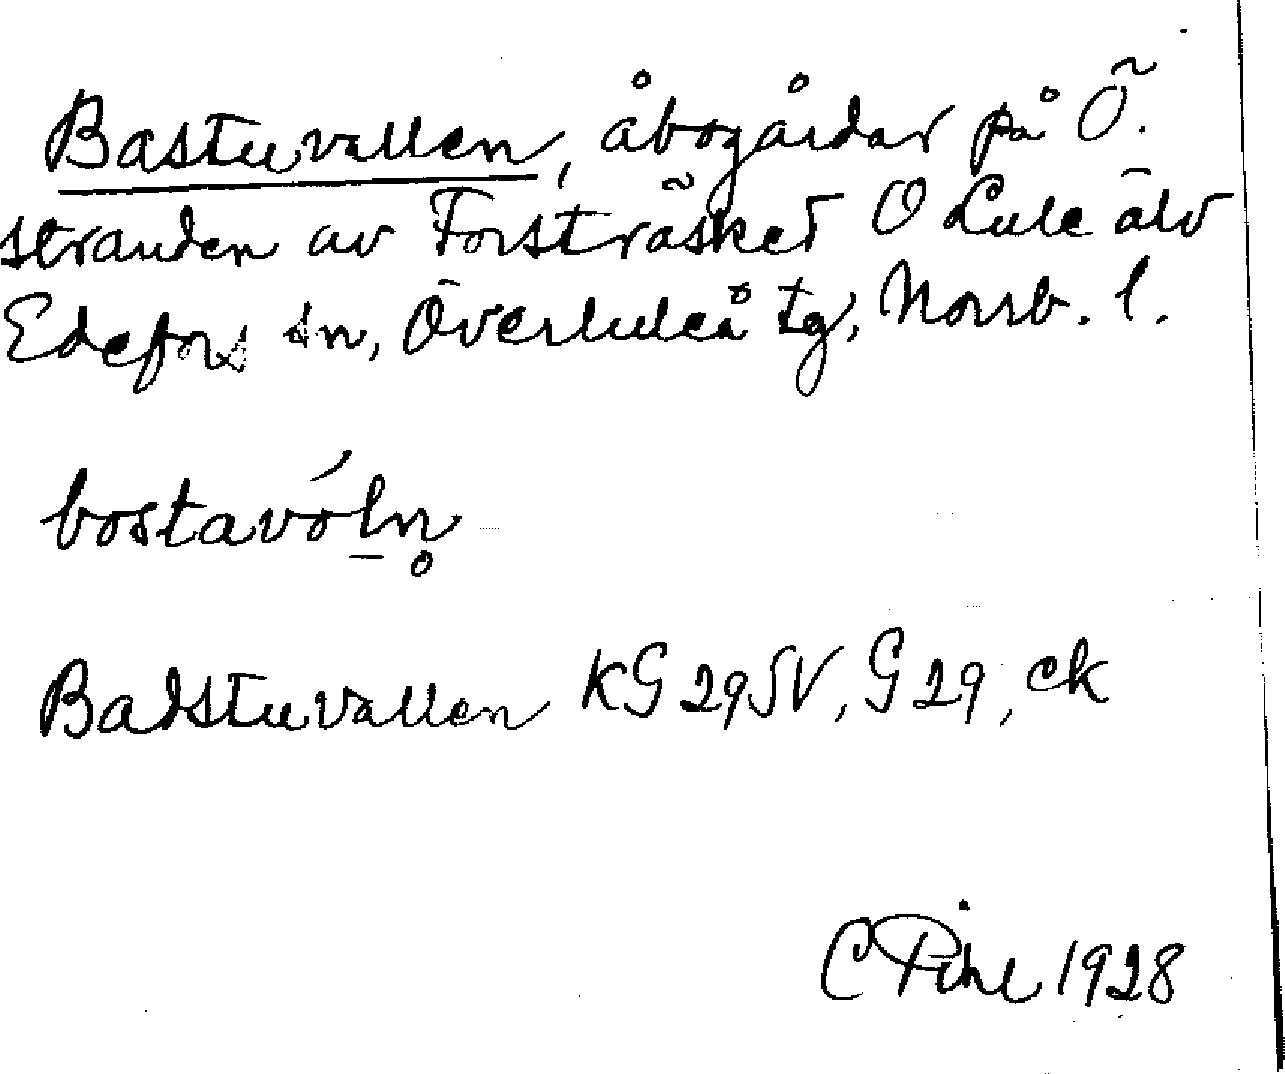 Bastuvallen, åbogårdar på Ö.
stranden av Forsträsket O Lule älv
Edefors sn, Överluleå tg, Norrb. l.
bostavó̱ln̥
Badstuvallen KG 29 SV, G 29, ek
C Pihl 1928